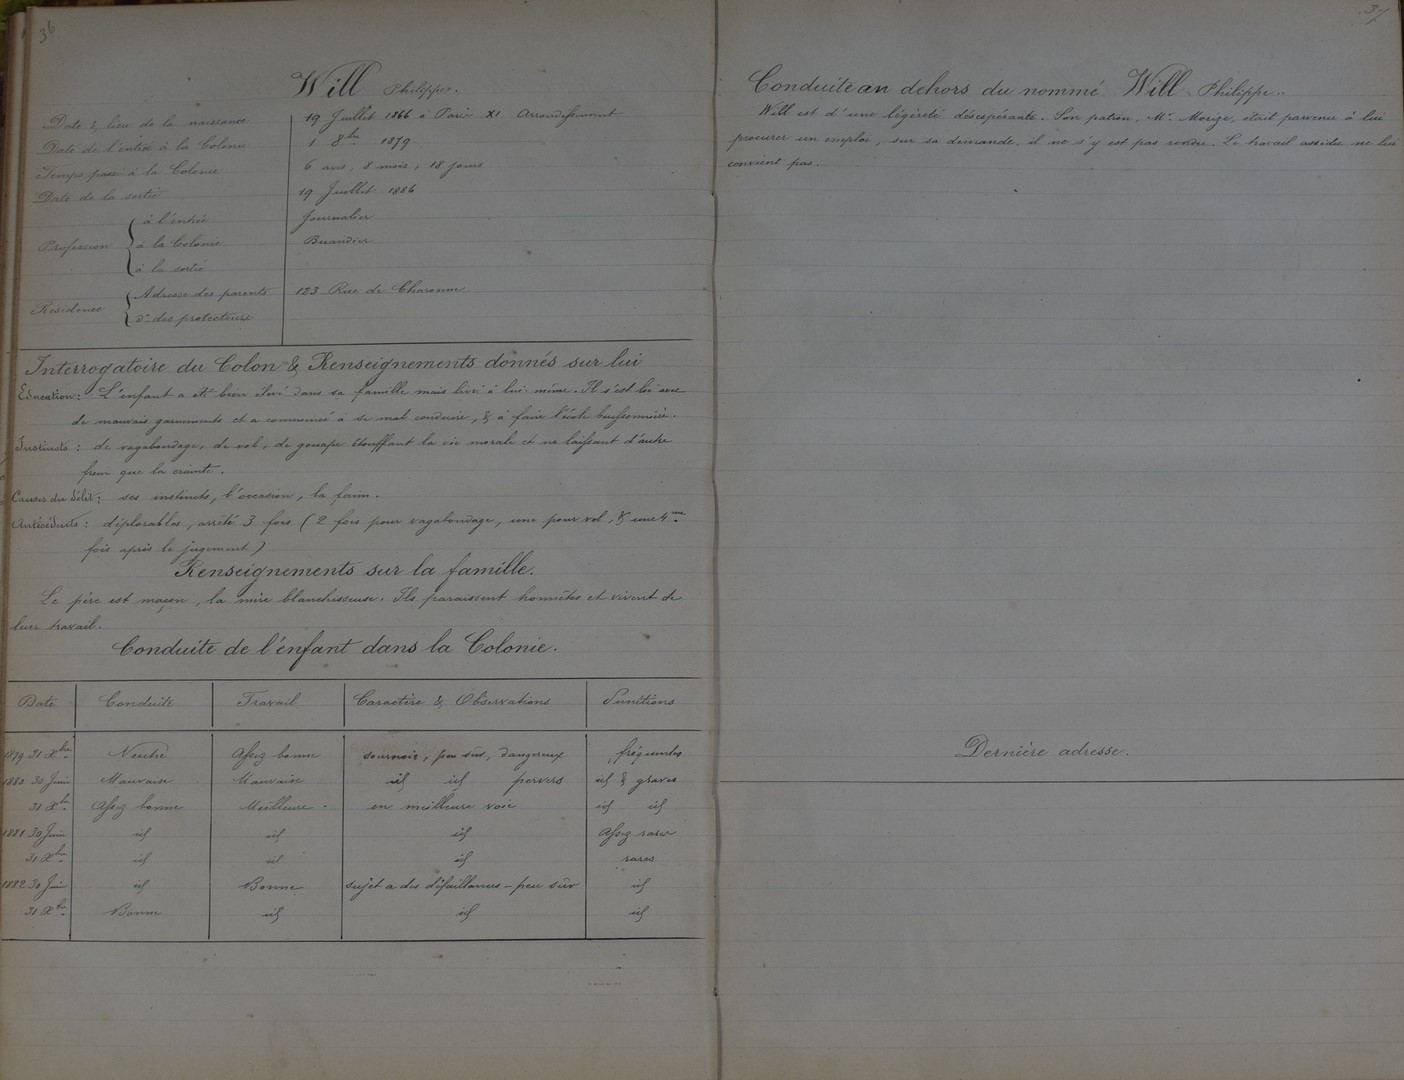 36
Will Philippe.
Date & lieu de la naissance 19 Juillet 1866 à Paris XI Arrondissement
Date de l'entrée à la Colonie 1 8bre 1879
Temps passé à la Colonie 6 ans, 8 mois, 18 jours
Date de la sortie 19 Juillet 1886
Profession
à l'entrée Journalier
à la Colonie Buandier
à la sortie
Résidence
Adresse des parents 123 Rue de Charonne
do des protecteurs
Interrogatoire du Colon & Renseignements donnés sur lui
Education : L'enfant a été bien élevé dans sa famille mais livré à lui-même. Il s'est lié avec
de mauvais garnements et a commencé à se mal conduire, & à faire l'école buissonnière.
Instincts : de vagabondage, de vol, de gouape étouffant la vie morale et ne laissant d'autre
frein que la crainte.
Causes du délit : ses instincts, l'occasion, la faim.
Antécédents : déplorables, arrêté 3 fois (2 fois pour vagabondage, une pour vol, & une 4me
fois après le jugement)
Renseignements sur la famille.
Le père est maçon, la mère blanchisseuse. Ils paraissent honnêtes et vivent de
leur travail.
Conduite de l'enfant dans la Colonie.
Date Conduite Travail Caractère & Observations Punitions
1879 31 Xbre Neutre Assez bonne sournois, peu sûr, dangereux fréquentes
1880 30 Juin Mauvaise Mauvaise id id pervers id & graves
31 Xbre Assez bonne Meilleure. en meilleure voie id id
1881 30 Juin id id id Assez rares
31 Xbre id id id rares
1882 30 Juin id Bonne sujet a des défaillances - peu sûr id
31 Xbre Bonne id id id
37
Conduite au dehors du nommé Will Philippe.
Will est d'une légèreté désespérante. Son patron, Mr. Morize, était parvenu à lui
procurer un emploi, sur sa demande, il ne s'y est pas rendu. Le travail assidu ne lui
convient pas.
Dernière adresse.